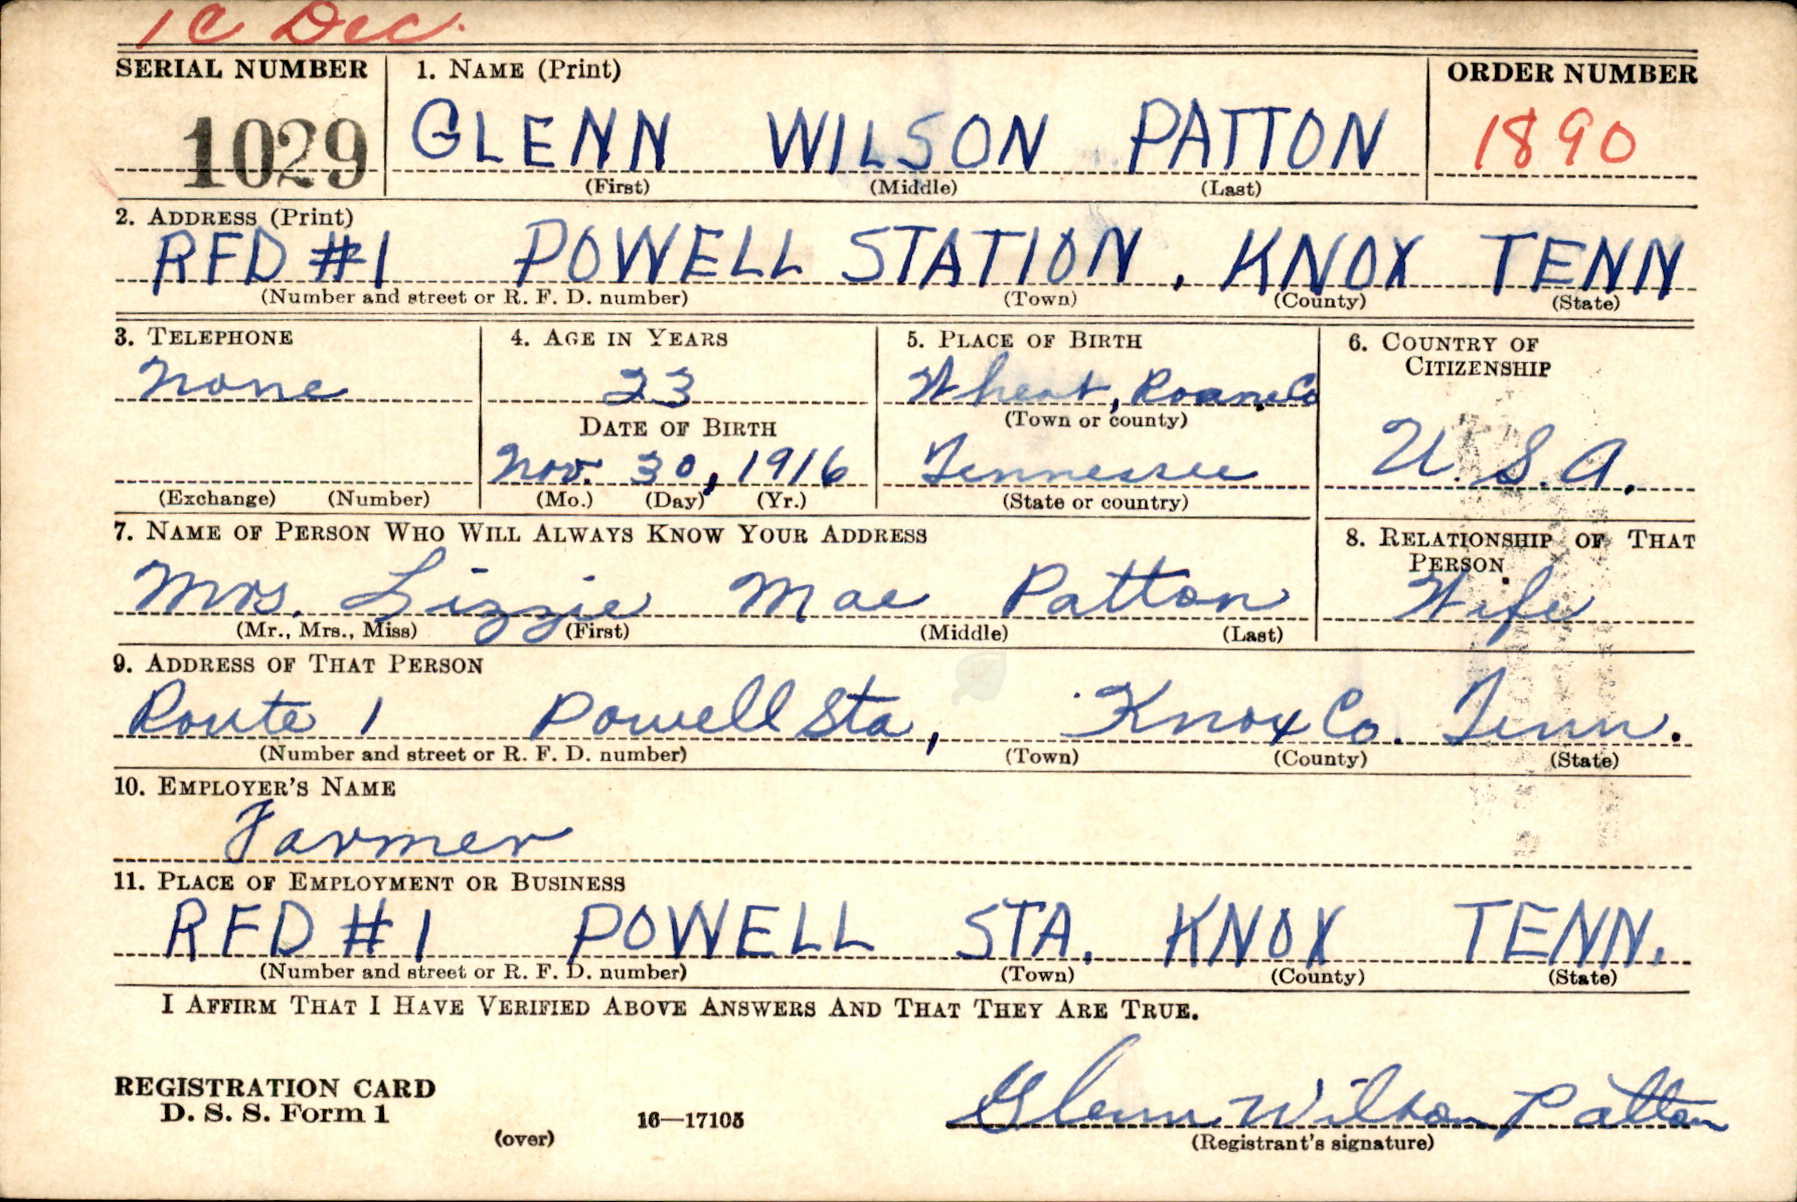 1C Dec.
SERIAL NUMBER 1. NAME (Print) ORDER NUMBER
1029 GLENN WILSON PATTON 1890
(First) (Middle) (Last)
2. ADDRESS (Print)
RFD #1 POWELL STATION, KNOX TENN
(Number and street or R. F. D. number) (Town) (County) (State)
3. TELEPHONE 4. AGE IN YEARS 5. PLACE OF BIRTH 6. COUNTRY OF
CITIZENSHIP
None 23 Wheat, Roane Co
DATE OF BIRTH (Town or county)
Nov. 30, 1916 Tennessee U. S. A.
(Exchange) (Number) (Mo.) (Day) (Yr.) (State or country)
7. NAME OF PERSON WHO WILL ALWAYS KNOW YOUR ADDRESS 8. RELATIONSHIP OF THAT
PERSON
Mrs. Lizzie Mae Patton Wife
(Mr., Mrs., Miss) (First) (Middle) (Last)
9. ADDRESS OF THAT PERSON
Route 1 Powell Sta, Knox Co. Tenn.
(Number and street or R. F. D. number) (Town) (County) (State)
10. EMPLOYER'S NAME
Farmer
11. PLACE OF EMPLOYMENT OR BUSINESS
RFD #1 POWELL STA. KNOX TENN.
(Number and street or R. F. D. number) (Town) (County) (State)
I AFFIRM THAT I HAVE VERIFIED ABOVE ANSWERS AND THAT THEY ARE TRUE.
REGISTRATION CARD
D. S. S. Form 1 16—17105 Glenn Wilson Patton
(over) (Registrant's signature)